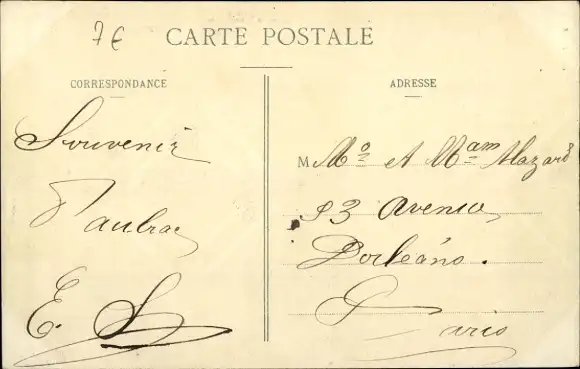 7€
CARTE POSTALE
CORRESPONDANCE
Souvenir
D'aubrac
E. S
ADRESSE
M Mº et Mam Mazard
83 avenue
Dorléans.
Paris